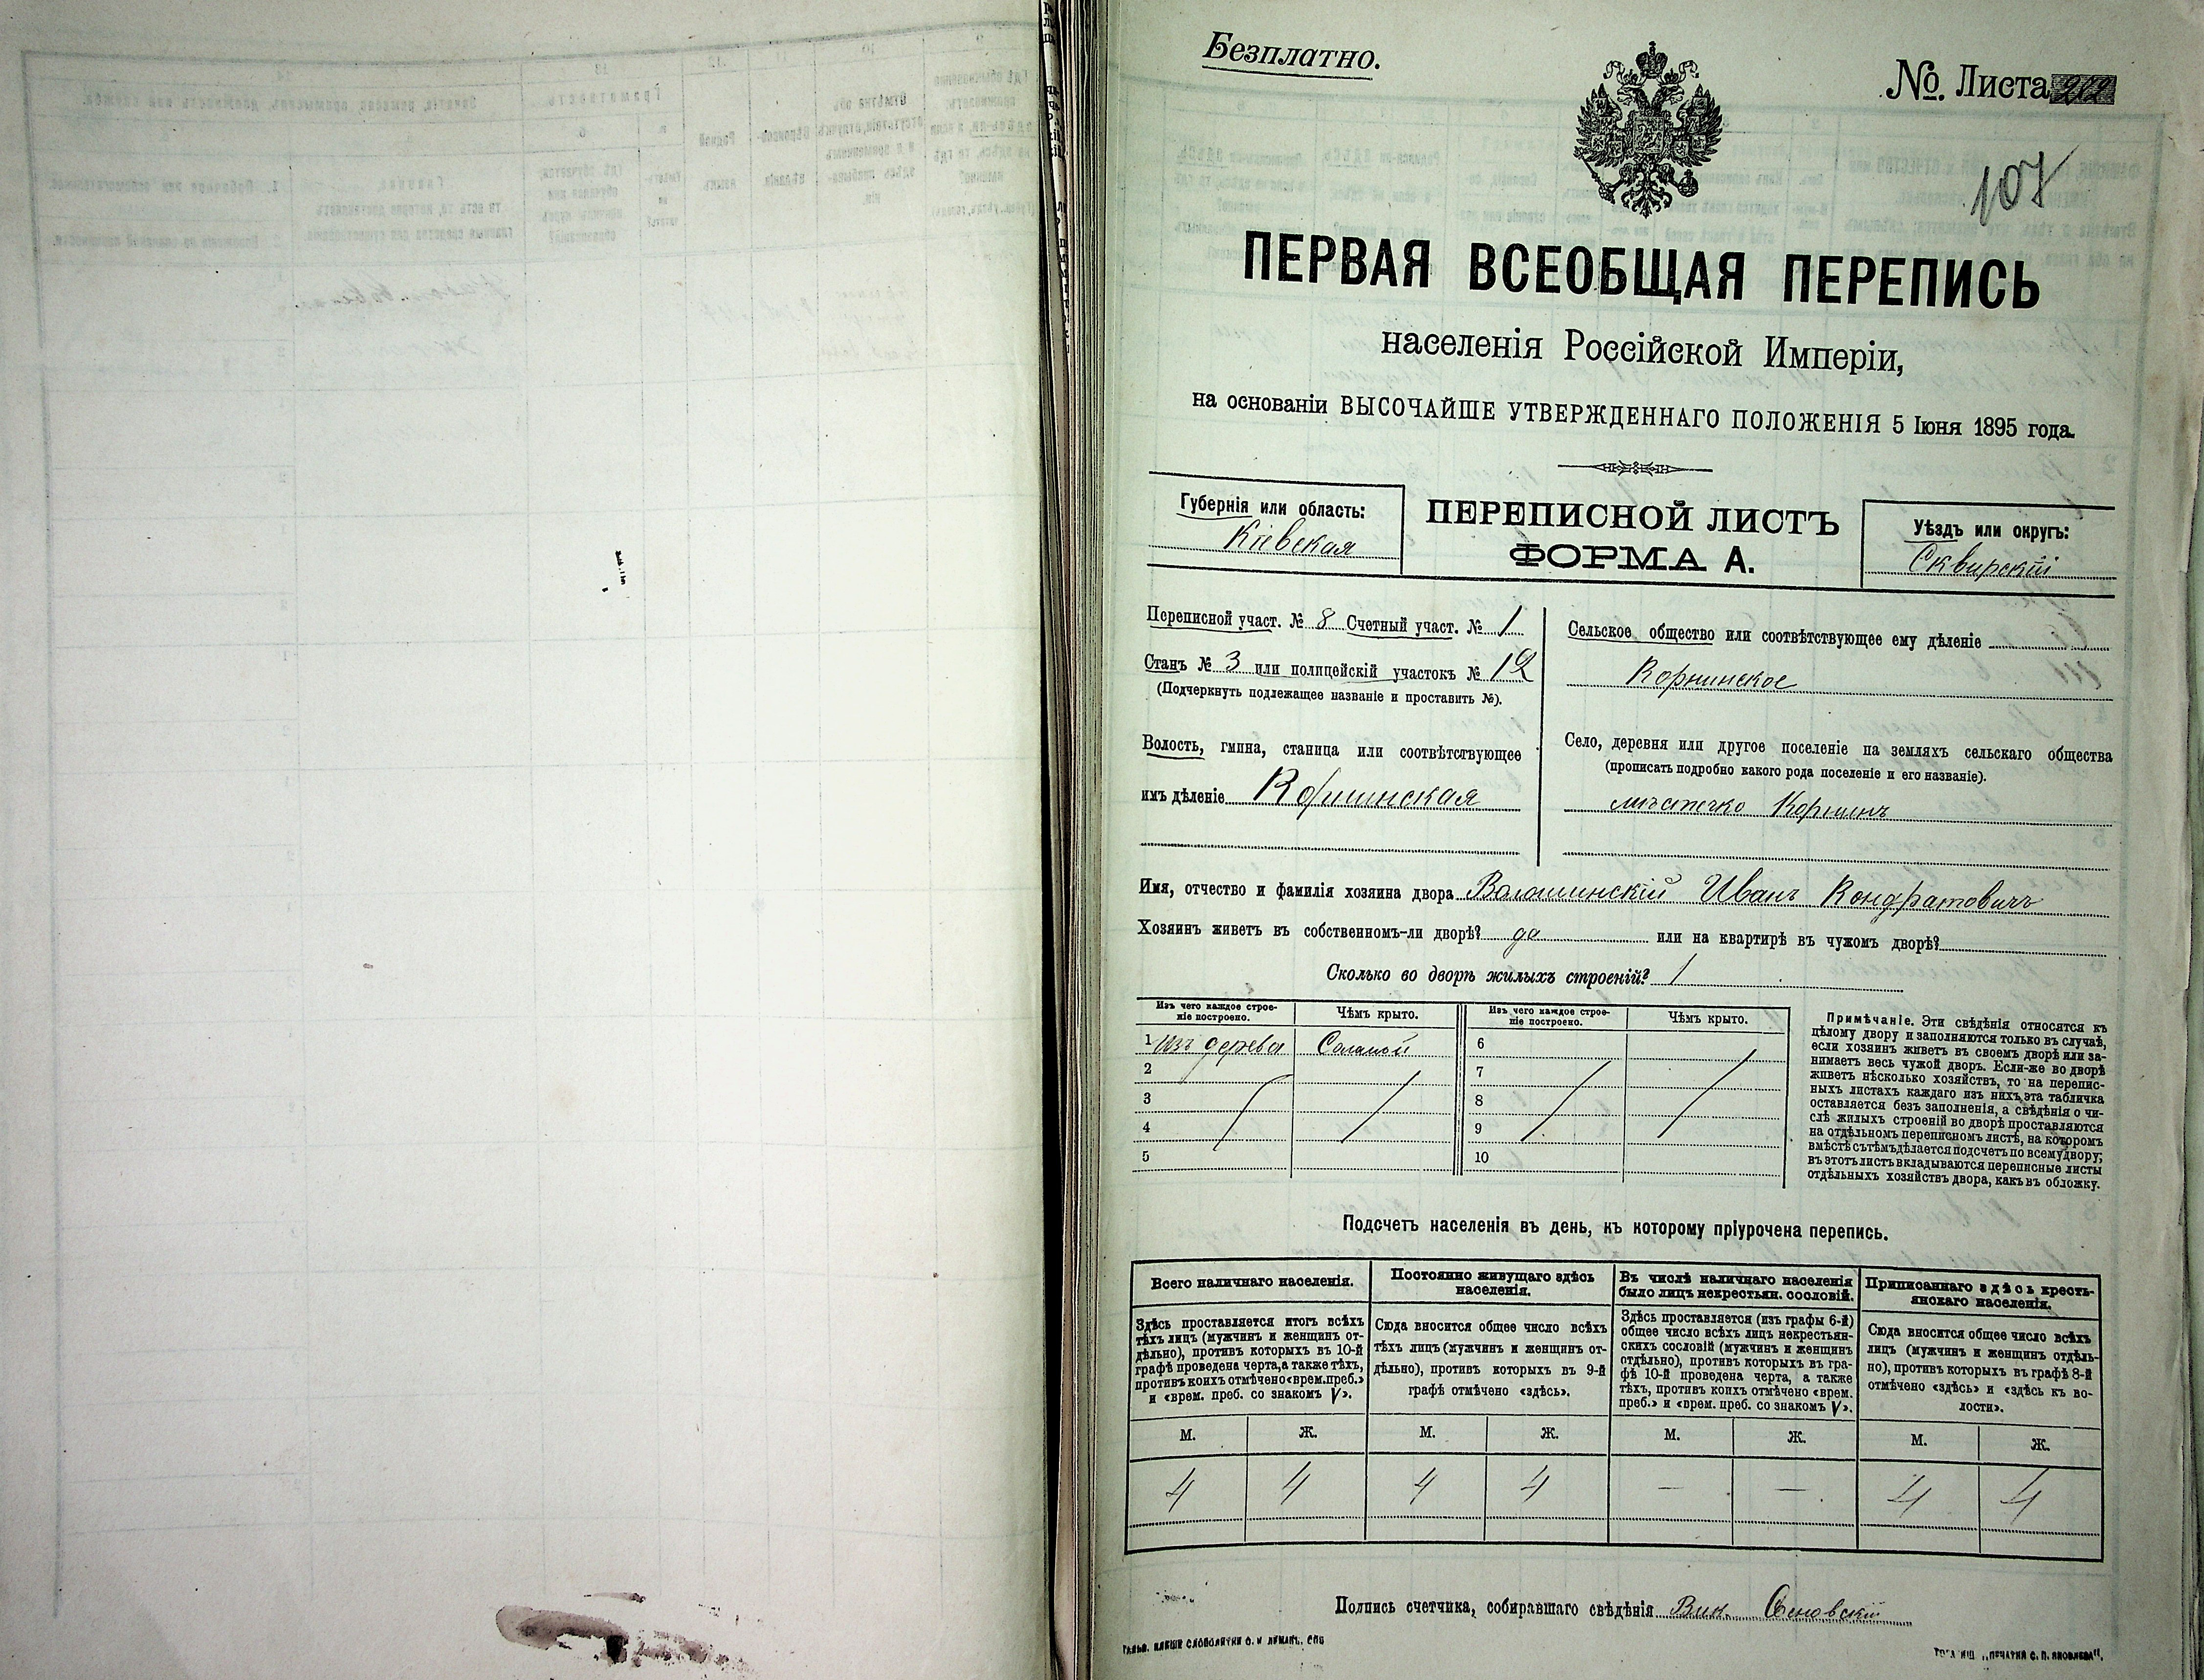 Безплатно.
№ Листа 202
107
ПЕРВАЯ ВСЕОБЩАЯ ПЕРЕПИСЬ
населенія Россійской Имперіи,
на основаніи ВЫСОЧАЙШЕ УТВЕРЖДЕННАГО ПОЛОЖЕНІЯ 5 Іюня 1895 года.
Губернія или область:
Кіевская
ПЕРЕПИСНОЙ ЛИСТЪ
ФОРМА А.
Уѣздъ или округъ:
Сквирскій
Переписной участ. № 8 Счетный участ. № 1
Станъ № 3 или полицейскій участокъ № 12
(Подчеркнуть подлежащее названіе и проставить №).
Волость, гмина, станица или соотвѣтствующее
имъ дѣленіе Корнинская
Сельское общество или соотвѣтствующее ему дѣленіе
Корнинское
Село, деревня или другое поселеніе на земляхъ сельскаго общества
(прописать подробно какого рода поселеніе и его названіе).
мѣстечко Корнинъ
Имя, отчество и фамилія хозяина двора Волошинскій Иванъ Кондратовичъ
Хозяинъ живетъ въ собственномъ-ли дворѣ? да или на квартирѣ въ чужомъ дворѣ?
Сколько во дворѣ жилыхъ строеній? 1
Изъ чего каждое строе-
ніе построено.
Чѣмъ крыто.
Изъ чего каждое строе-
ніе построено.
Чѣмъ крыто.
1 Изъ дерева Соломой 6
2 7
3 8
4 9
5 10
Примѣчаніе. Эти свѣдѣнія относятся къ
цѣлому двору и заполняются только въ случаѣ,
если хозяинъ живетъ въ своемъ дворѣ или за-
нимаетъ весь чужой дворъ. Если-же во дворѣ
живетъ нѣсколько хозяйствъ, то на перепис-
ныхъ листахъ каждаго изъ нихъ, эта табличка
оставляется безъ заполненія, а свѣдѣнія о чи-
слѣ жилыхъ строеній во дворѣ проставляются
на отдѣльномъ переписномъ листѣ, на которомъ
вмѣстѣ съ тѣмъ дѣлается подсчетъ по всему двору;
въ этотъ листъ вкладываются переписные листы
отдѣльныхъ хозяйствъ двора, какъ въ обложку.
Подсчетъ населенія въ день, къ которому пріурочена перепись.
Всего наличнаго населенія.
Здѣсь проставляется итогъ всѣхъ
тѣхъ лицъ (мужчинъ и женщинъ от-
дѣльно), противъ которыхъ въ 10-й
графѣ проведена черта, а также тѣхъ,
противъ коихъ отмѣчено «врем. преб.»
и «врем. преб. со знакомъ V».
Постоянно живущаго здѣсь
населенія.
Сюда вносится общее число всѣхъ
тѣхъ лицъ (мужчинъ и женщинъ от-
дѣльно), противъ которыхъ въ 9-й
графѣ отмѣчено «здѣсь».
Въ числѣ наличнаго населенія
было лицъ некрестьян. сословій.
Здѣсь проставляется (изъ графы 6-й)
общее число всѣхъ лицъ некрестьян-
скихъ сословій (мужчинъ и женщинъ
отдѣльно), противъ которыхъ въ гра-
фѣ 10-й проведена черта, а также
тѣхъ, противъ коихъ отмѣчено «врем.
преб.» и «врем. преб. со знакомъ V».
Приписаннаго здѣсь кресть-
янскаго населенія.
Сюда вносится общее число всѣхъ
лицъ (мужчинъ и женщинъ отдѣль-
но), противъ которыхъ въ графѣ 8-й
отмѣчено «здѣсь» и «здѣсь къ во-
лости».
М. Ж. М. Ж. М. Ж. М. Ж.
4 4 4 4 — — 4 4
Подпись счетчика, собиравшаго свѣдѣнія Вик.